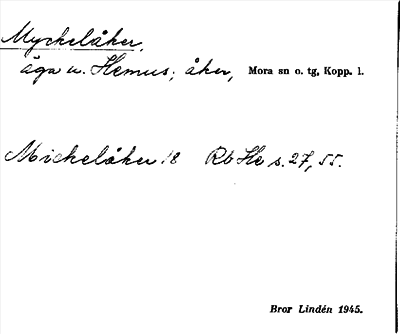 Myckelåker,
äga u. Hemus; åker, Mora sn o. tg, Kopp. l.
Mickelåker 18 Rb He s. 27, 55.
Bror Lindén 1945.